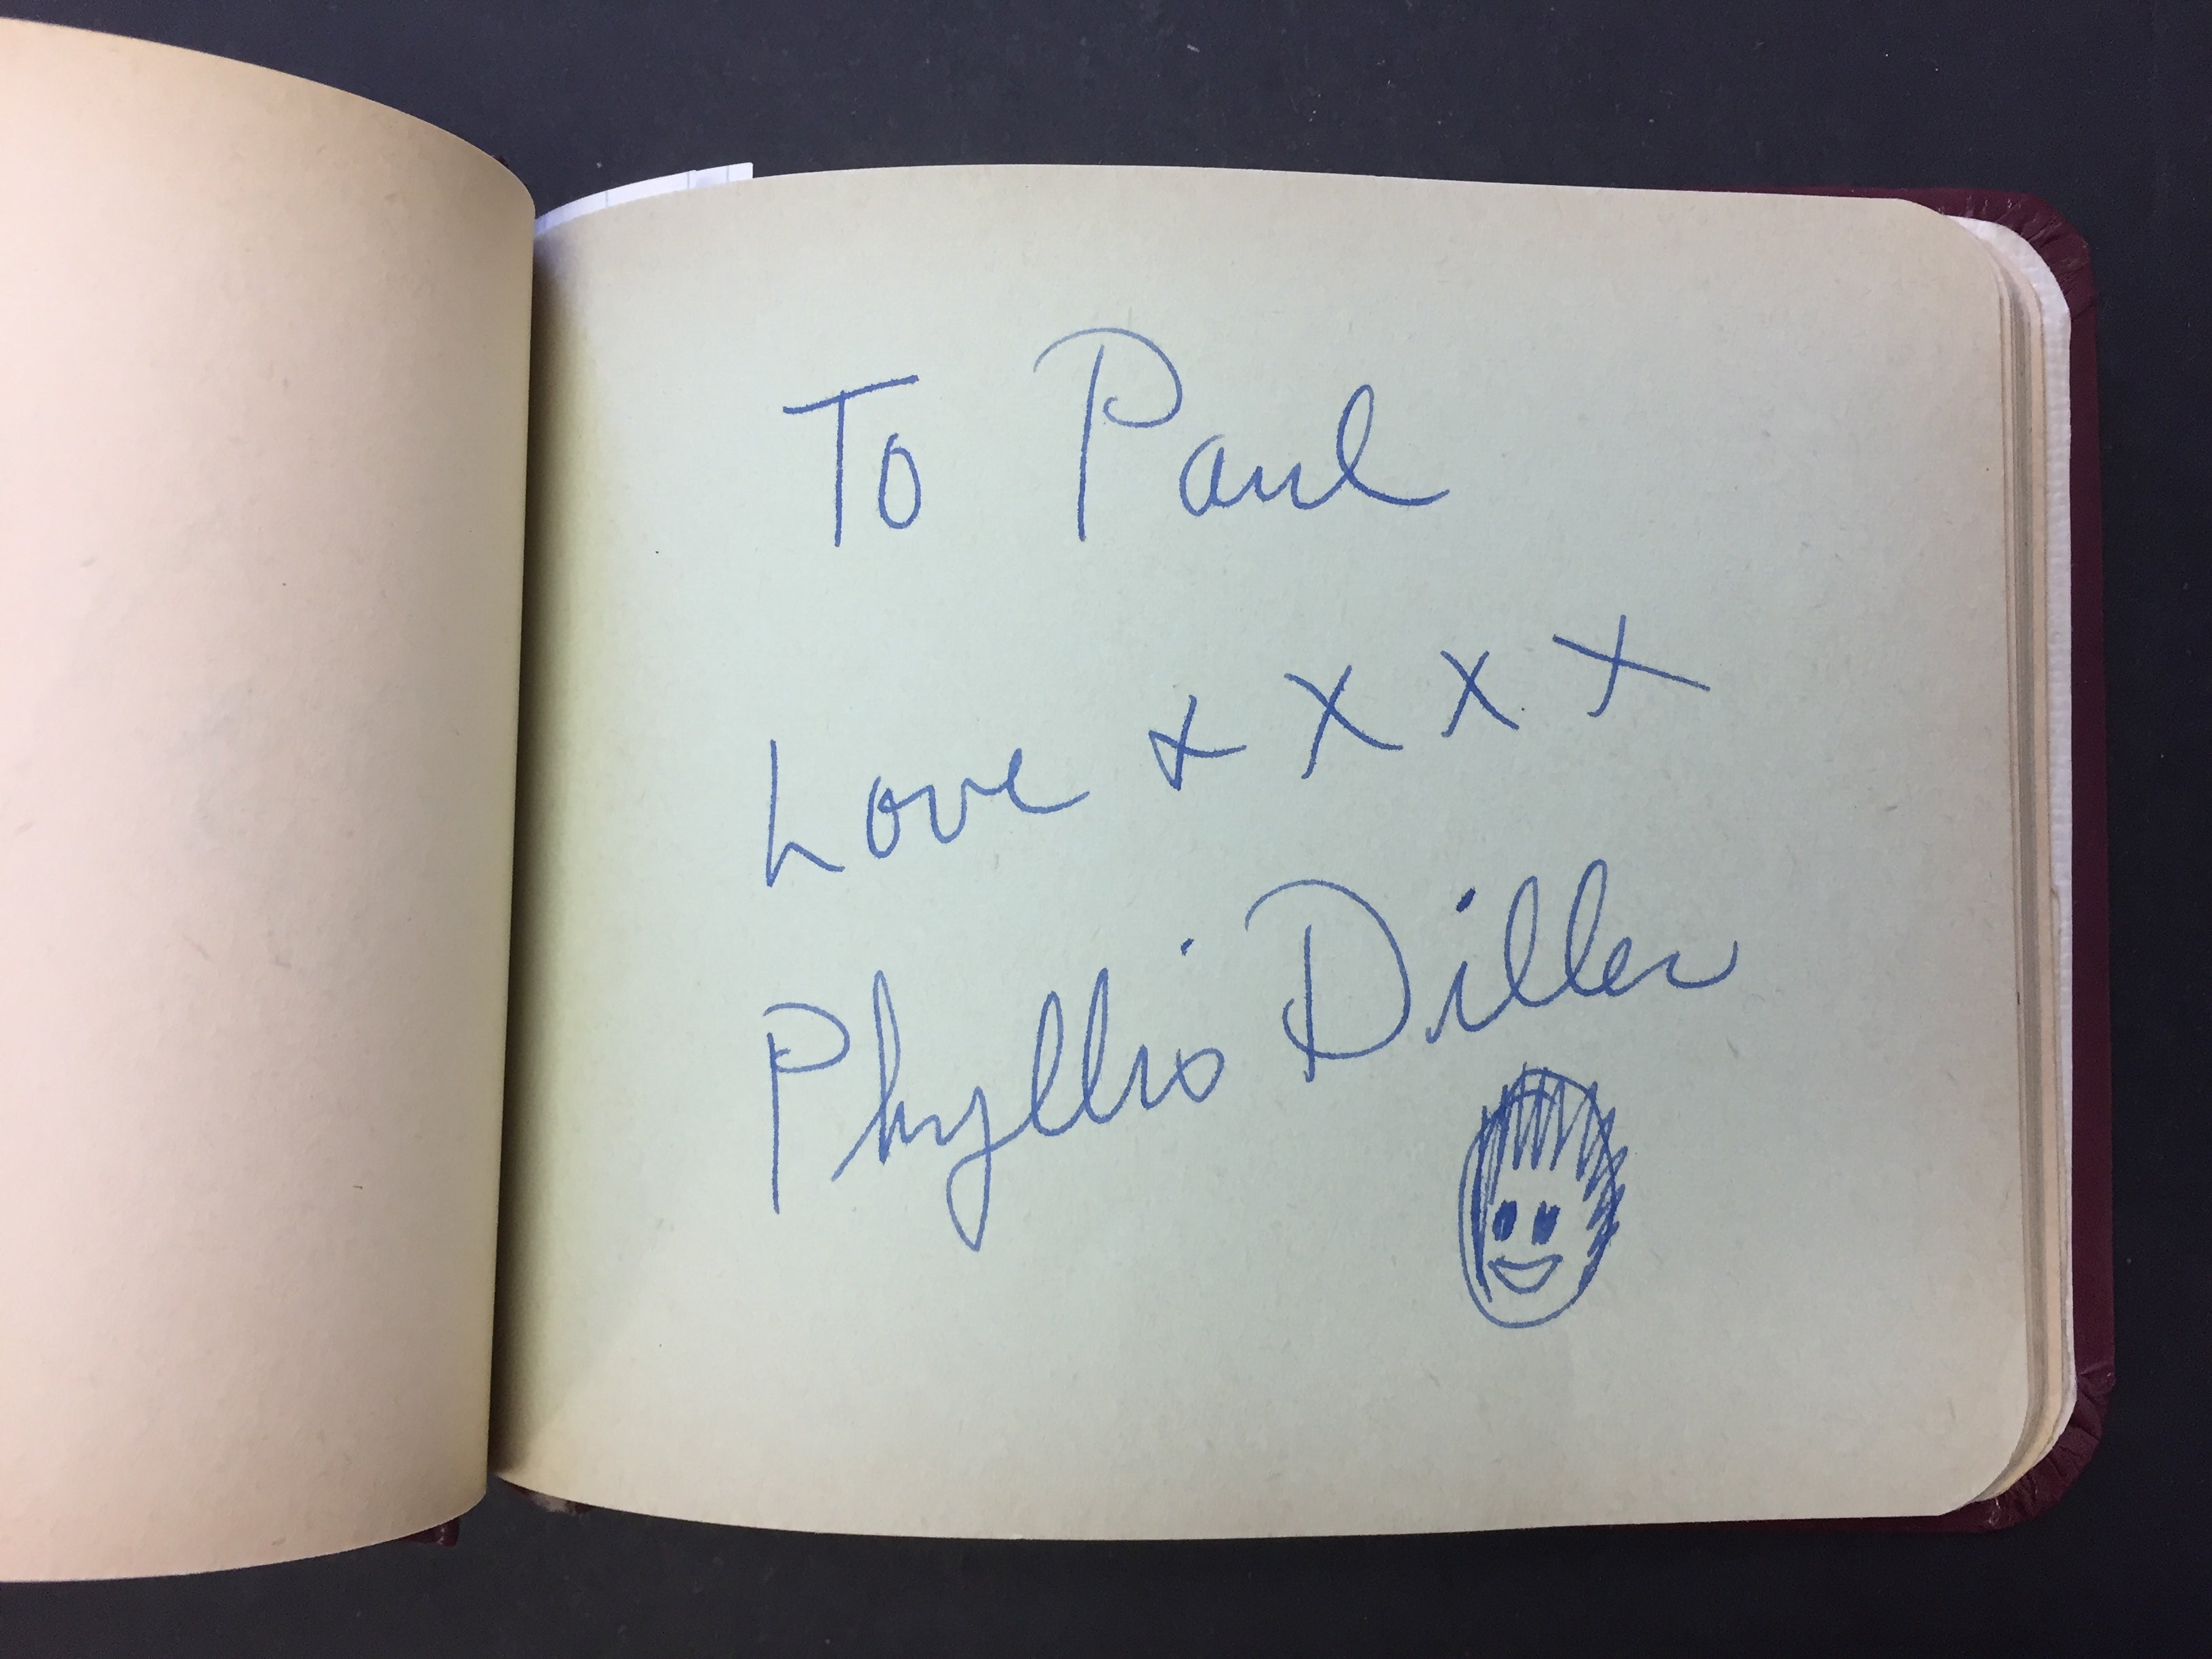 To Paul
Love + x x x
Phyllis Diller